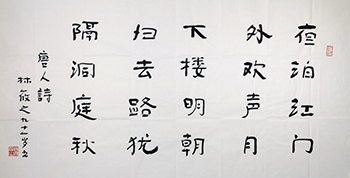 夜泊江门
外欢声月
下楼明朝
归去路犹
隔洞庭秋
唐人詩
林筱之九十一岁书